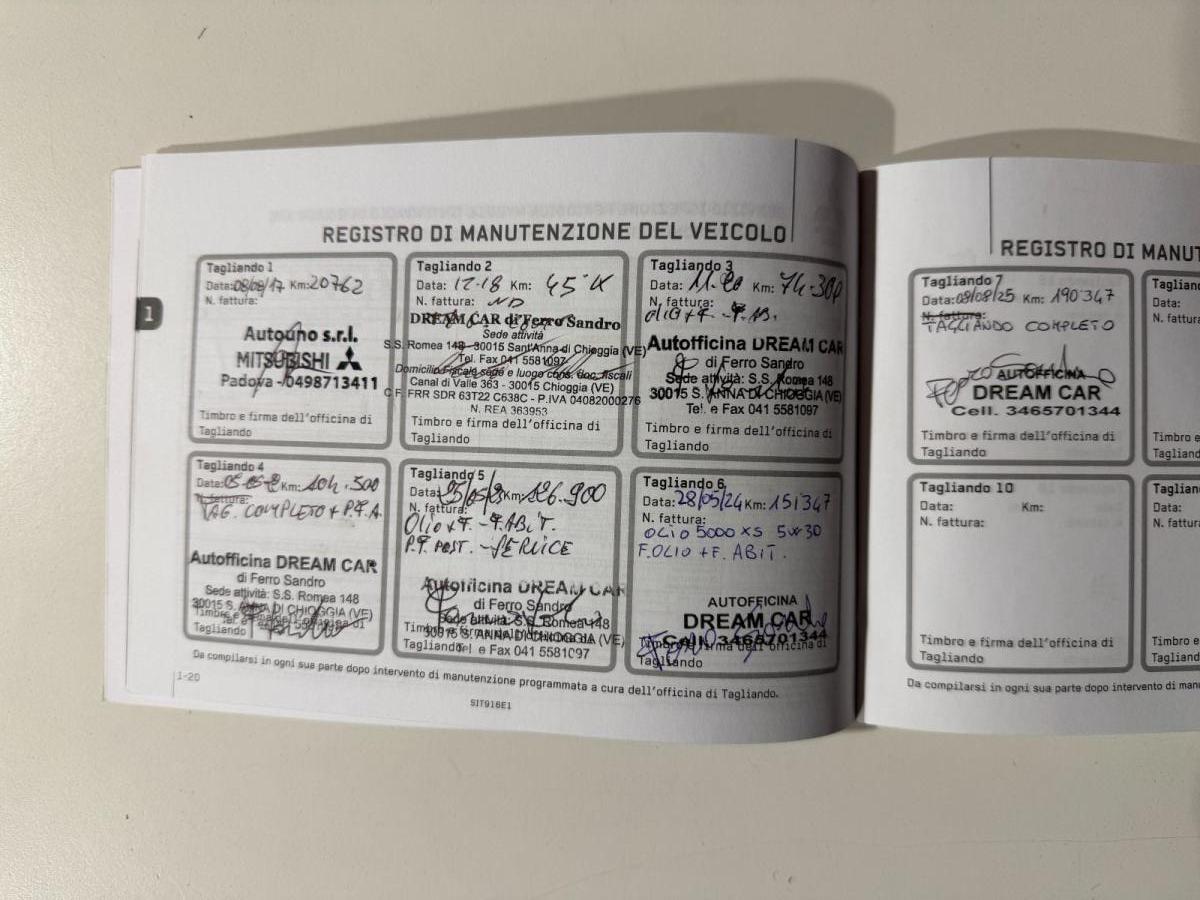 REGISTRO DI MANUTENZIONE DEL VEICOLO
1
Tagliando 1
Data: 08/08/17 Km: 20762
N. fattura:
Autouno s.r.l.
MITSUBISHI
Padova - 0498713411
Timbro e firma dell'officina di
Tagliando
Tagliando 2
Data: 12-18 Km: 45
N. fattura: ND
DREAM CAR di Ferro Sandro
Sede attività
S.S. Romea 148 - 30015 Sant'Anna di Chioggia (VE)
Tel. Fax 041 5581097
Domicilio fiscale sede e luogo cons. doc. fiscali
Canal di Valle 363 - 30015 Chioggia (VE)
C.F. FRR SDR 63T22 C638C - P.IVA 04082000276
N. REA 363953
Timbro e firma dell'officina di
Tagliando
Tagliando 3
Data: 11-20 Km: 74.300
N. fattura:
OLIO + F. - F. AB.
Autofficina DREAM CAR
di Ferro Sandro
Sede attività: S.S. Romea 148
30015 S. ANNA DI CHIOGGIA (VE)
Tel. e Fax 041 5581097
Timbro e firma dell'officina di
Tagliando
Tagliando 4
Data: 05-05-2 Km: 104.500
N. fattura:
TAG. COMPLETO + P.F.A.
Autofficina DREAM CAR
di Ferro Sandro
Sede attività: S.S. Romea 148
30015 S. ANNA DI CHIOGGIA (VE)
Tagliando
Tagliando 5
Data: 25/05/23 Km: 126.900
N. fattura:
OLIO + F. - F. ABIT.
P.F. POST. - SERVICE
Autofficina DREAM CAR
di Ferro Sandro
Sede attività: S.S. Romea 148
30015 S. ANNA DI CHIOGGIA (VE)
Tagliando Tel. e Fax 041 5581097
Tagliando 6
Data: 28/05/24 Km: 151347
N. fattura:
OLIO 5000 XS 5W30
F. OLIO + F. ABIT.
AUTOFFICINA
DREAM CAR
Cell. 3465701344
Timbro e firma dell'officina di
Tagliando
Da compilarsi in ogni sua parte dopo intervento di manutenzione programmata a cura dell'officina di Tagliando.
1-20
SIT916E1
REGISTRO DI MANUT
Tagliando 7
Data: 08/08/25 Km: 190347
N. fattura:
TAGLIANDO COMPLETO
AUTOFFICINA
DREAM CAR
Cell. 3465701344
Timbro e firma dell'officina di
Tagliando
Tagliand
Data:
N. fattur
Timbro e
Tagliand
Tagliando 10
Data: Km:
N. fattura:
Timbro e firma dell'officina di
Tagliando
Tagliand
Data:
N. fattu
Timbro e
Tagliand
Da compilarsi in ogni sua parte dopo intervento di manu